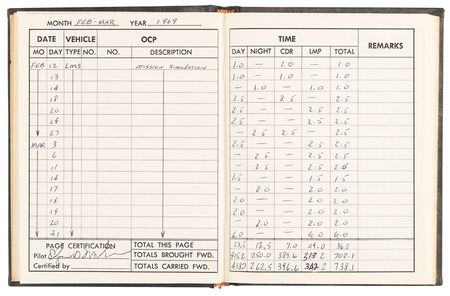 MONTH FEB-MAR YEAR 1969
DATE VEHICLE OCP TIME REMARKS
MO DAY TYPE NO. NO. DESCRIPTION DAY NIGHT CDR LMP TOTAL
FEB 12 LMS MISSION SIMULATION 1.0 — 1.0 — 1.0
13 1.0 — 1.0 — 1.0
14 — 1.0 — 1.0 1.0
18 2.5 — 2.5 — 2.5
20 2.5 — — 2.5 2.5
24 2.5 — — 2.5 2.5
27 — 2.5 2.5 — 2.5
MAR 3 2.5 — — 2.5 2.5
6 — 2.5 — 2.5 2.5
11 — 2.5 — 2.5 2.5
14 1.5 — — 1.5 1.5
17 — 2.0 — 2.0 2.0
18 2.0 — — 2.0 2.0
19 2.0 — — 2.0 2.0
20 — 2.0 — 2.0 2.0
21 6.0 — — 6.0 6.0
PAGE CERTIFICATION TOTAL THIS PAGE 12.5 7.0 29.0 36.0
Pilot TOTALS BROUGHT FWD. 415.2 250.0 389.6 702.1
Certified by TOTALS CARRIED FWD. 262.5 396.6 738.1